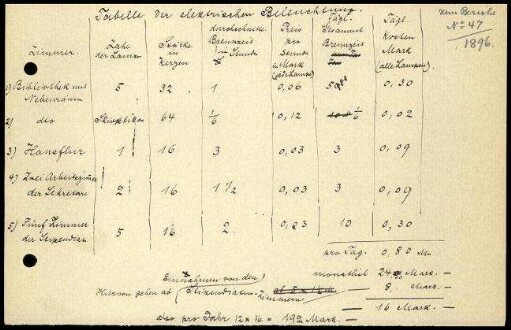 Tabelle der elektrischen Beleuchtung.
zum Berichte
No 47
1896.
Zimmer
Zahl der Lampen
Stärke in Kerzen
durchschnittl. Brennzeit in Stunden
Preis pro Stunde in Mark
Tägl. Gesammt Brennzeit
Tägl. Kosten Mark (aller Lampen)
1) Bibliothek mit Nebenraum 5 32 1 0,06 5 0,30
2) der Skioptikon 64 1/6 0,12 1/6 0,02
3) Hausflur 1 16 3 0,03 3 0,09
4) Zwei Arbeitszimmer der Sekretare 2 16 1 1/2 0,03 3 0,09
5) Fünf Zimmer der Stipendiaten 5 16 2 0,03 10 0,30
pro Tag. 0,80 M.
monatlich 24 Mark. —
Einnahmen von den
Hiervon gehen ab (Stipendiaten-Zimmern) 8 Mark. —
16 Mark —
also pro Jahr 12 x 16 = 192 Mark. —